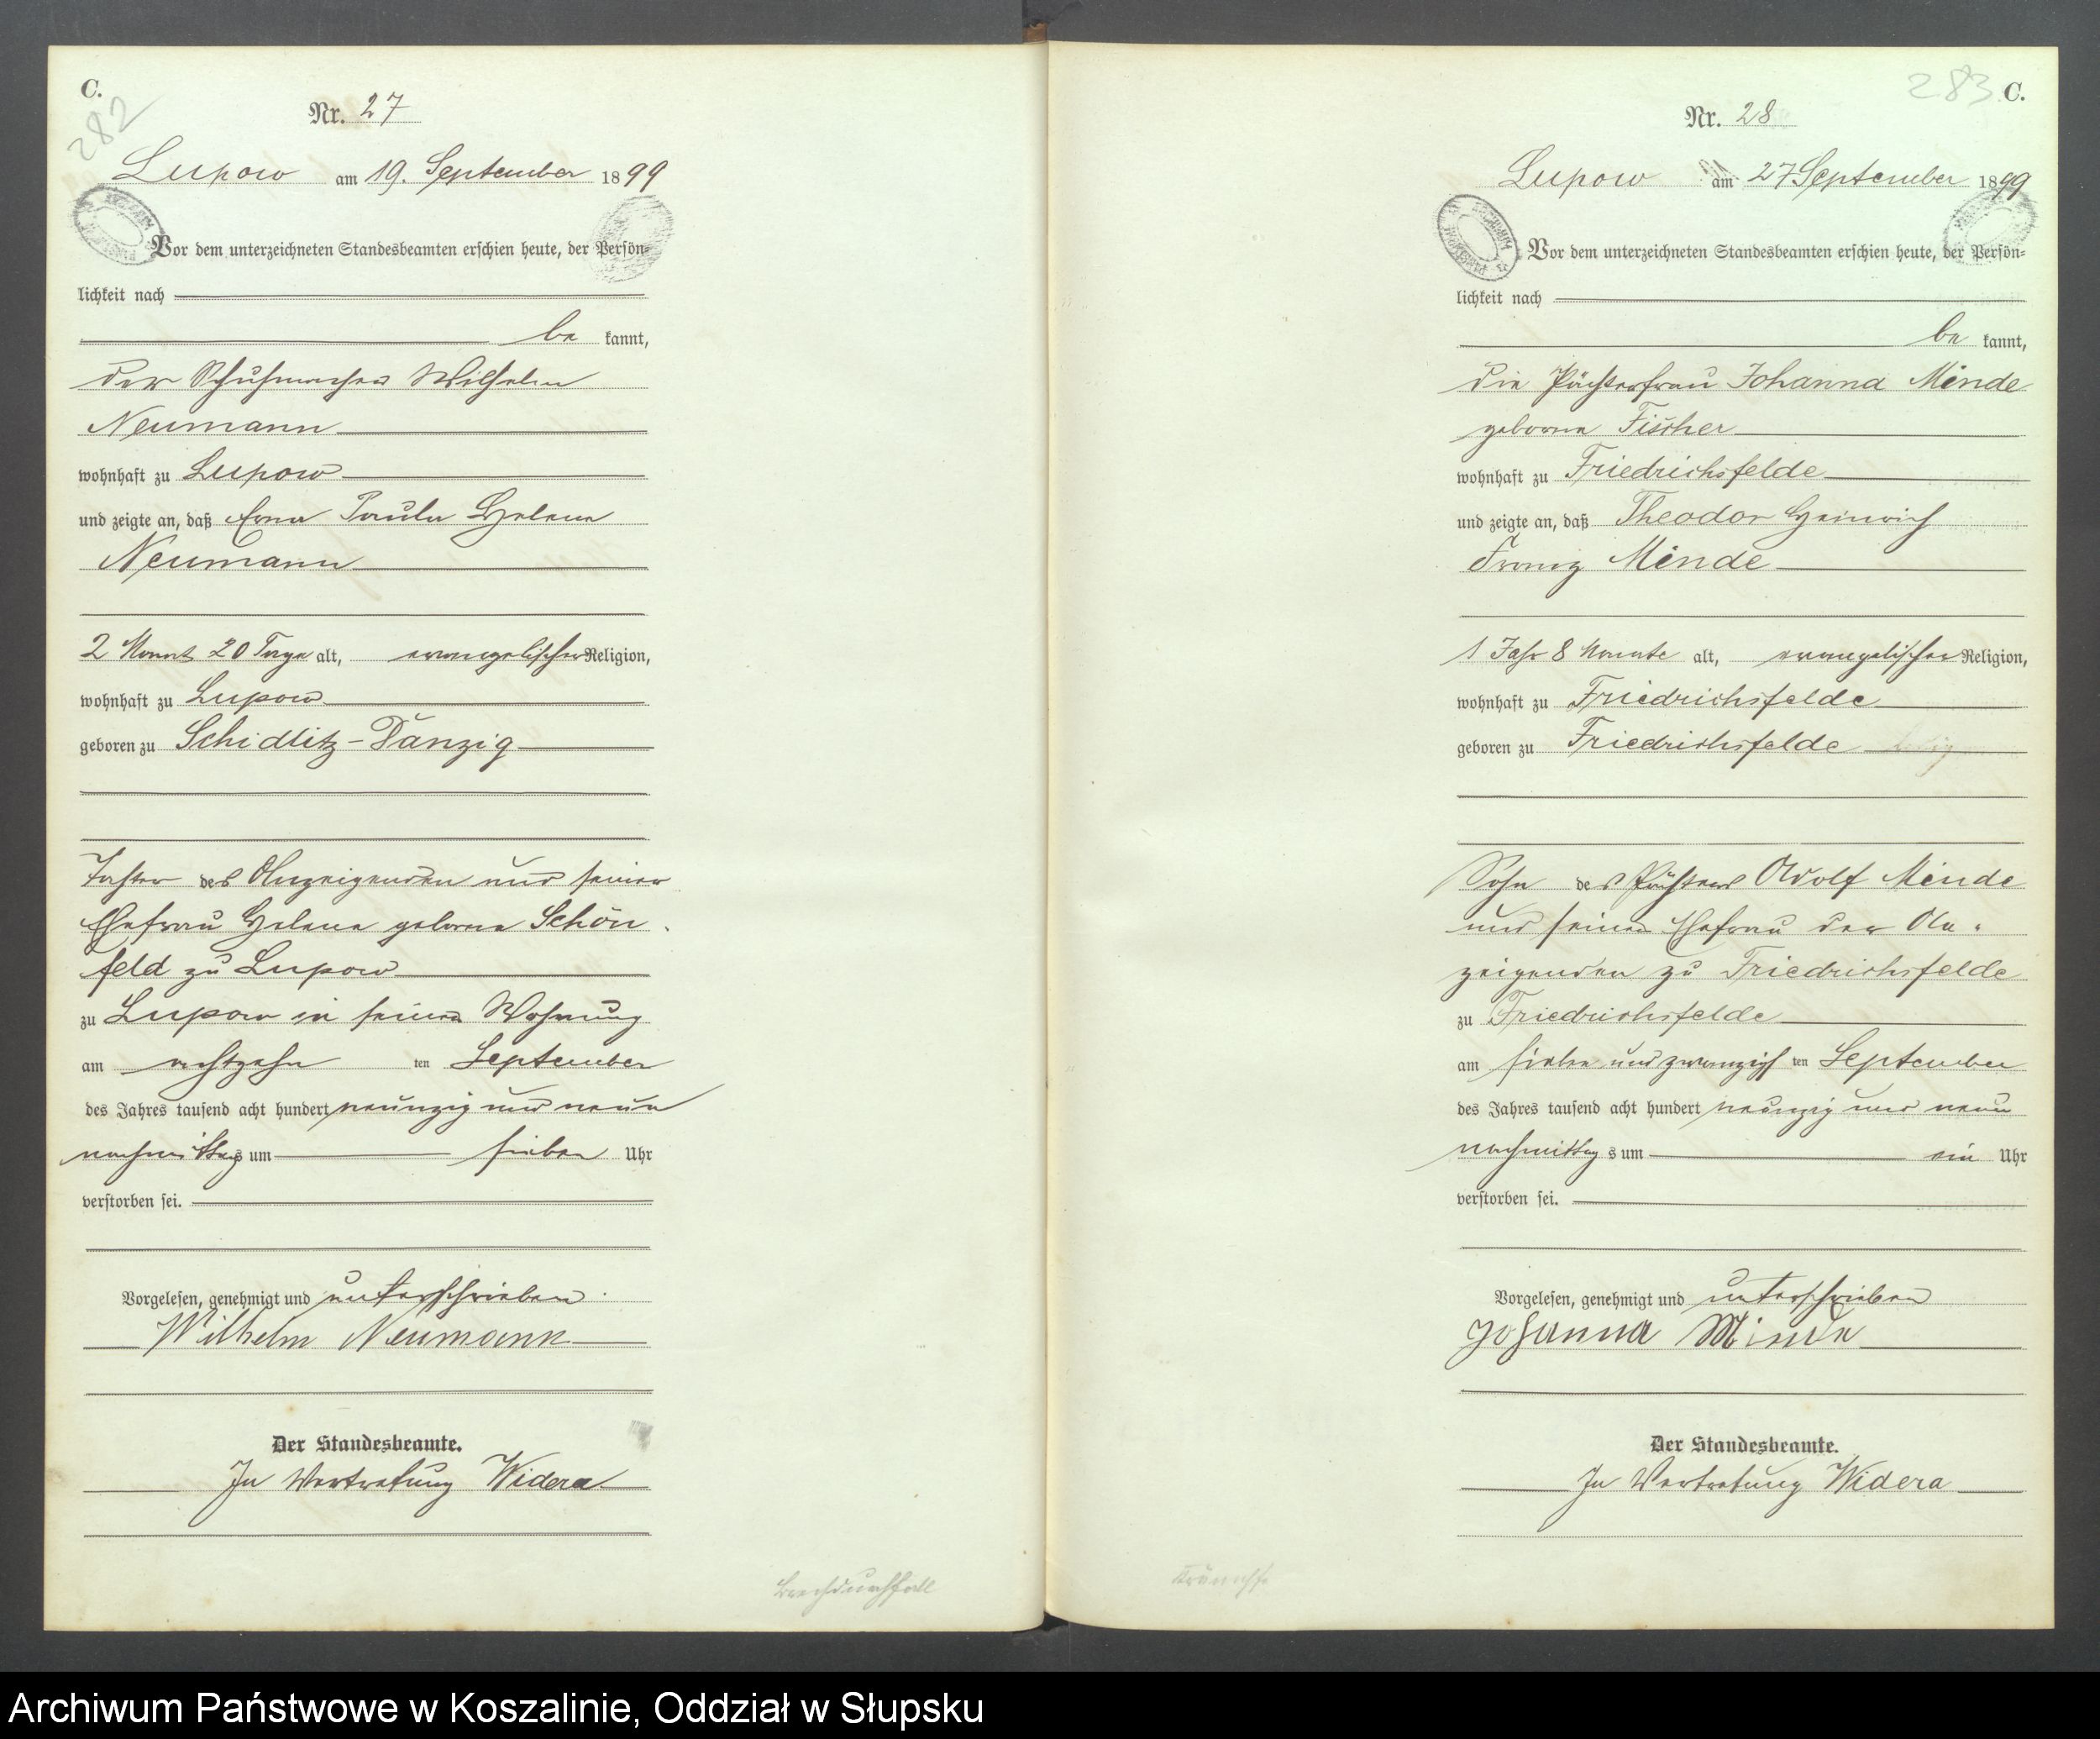 C.
282
Nr. 27
Lupow am 19. September 1899
Vor dem unterzeichneten Standesbeamten erschien heute, der Persön-
lichkeit nach
be kannt,
der Schuhmacher Wilhelm
Neumann
wohnhaft zu Lupow
und zeigte an, daß Erna Paula Helene
Neumann
2 Monat 20 Tage alt, evangelischer Religion,
wohnhaft zu Lupow
geboren zu Schidlitz-Danzig
Tochter des Anzeigenden und seiner
Ehefrau Helene geborne Schön-
feld zu Lupow
zu Lupow in seiner Wohnung
am achtzehn ten September
des Jahres tausend acht hundert neunzig und neun
nachmittags um sieben Uhr
verstorben sei.
Vorgelesen, genehmigt und unterschrieben
Wilhelm Neumann
Der Standesbeamte.
In Vertretung Widera
Brechdurchfall
283 C.
Nr. 28
Lupow am 27 September 1899
Vor dem unterzeichneten Standesbeamten erschien heute, der Persön-
lichkeit nach
be kannt,
die Pächterfrau Johanna Minde
geborne Fischer
wohnhaft zu Friedrichsfelde
und zeigte an, daß Theodor Heinrich
Franz Minde
1 Jahr 8 Monate alt, evangelischer Religion,
wohnhaft zu Friedrichsfelde
geboren zu Friedrichsfelde
Sohn des Pächters Adolf Minde
und seiner Ehefrau der An-
zeigenden zu Friedrichsfelde
zu Friedrichsfelde
am sieben und zwanzigsten September
des Jahres tausend acht hundert neunzig und neun
nachmittags um ein Uhr
verstorben sei.
Vorgelesen, genehmigt und unterschrieben
Johanna Minde
Der Standesbeamte.
In Vertretung Widera
Krämpfe
Archiwum Państwowe w Koszalinie, Oddział w Słupsku